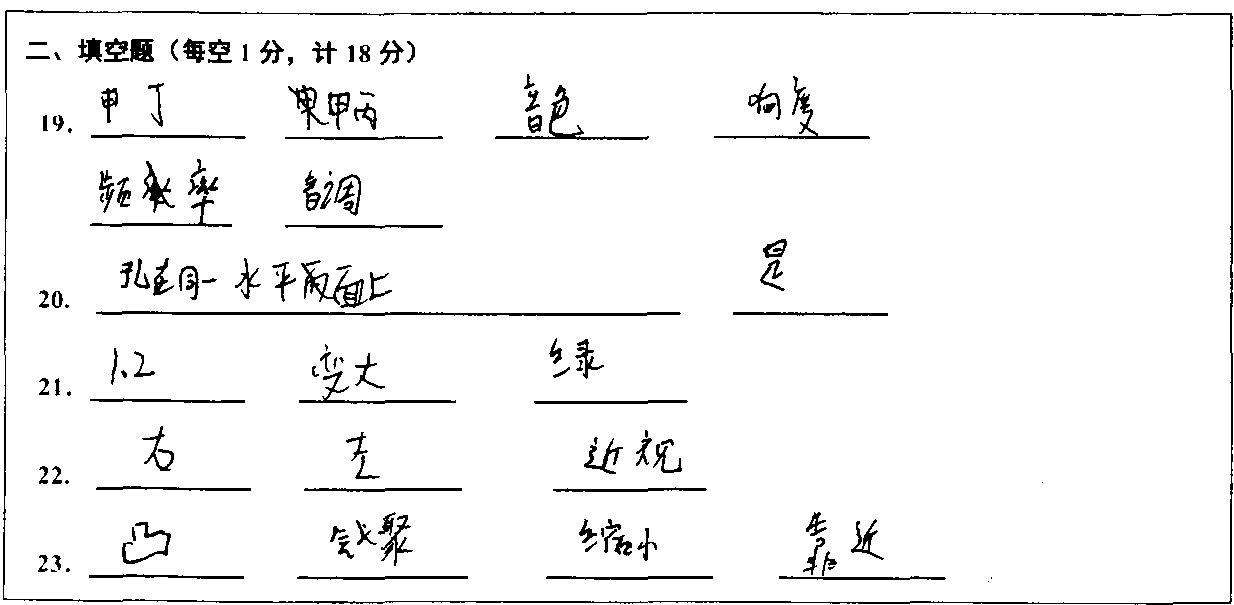 二、填空题（每空1分，计18分）
19. 甲丁 甲丙 音色 响度
频率 音调
20. 孔在同一水平面上 是
21. 1.2 变大 绿
22. 右 左 近视
23. 凸 会聚 缩小 靠近